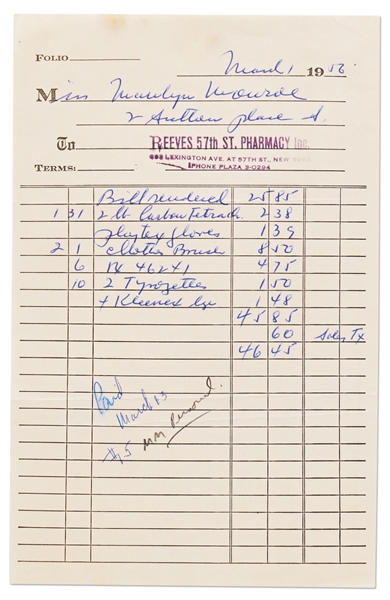 FOLIO
March 1 1956
Miss Marilyn Monroe
2 Sutton place S.
To REEVES 57th ST. PHARMACY Inc.
TERMS: LEXINGTON AVE. AT 57TH ST., NEW YORK
PHONE PLAZA 3-0294
Bill rendered 25 85
1 31 2 lb Carbon Tetrach 2 38
playtex gloves 1 39
2 1 Clothes Brush 8 50
6 Rx 46241 4 75
10 2 Tyrozettes 1 50
4 Kleenex lge 1 48
45 85
60 Sales Tx
46 45
Paid
March 13
#5 MM Personal